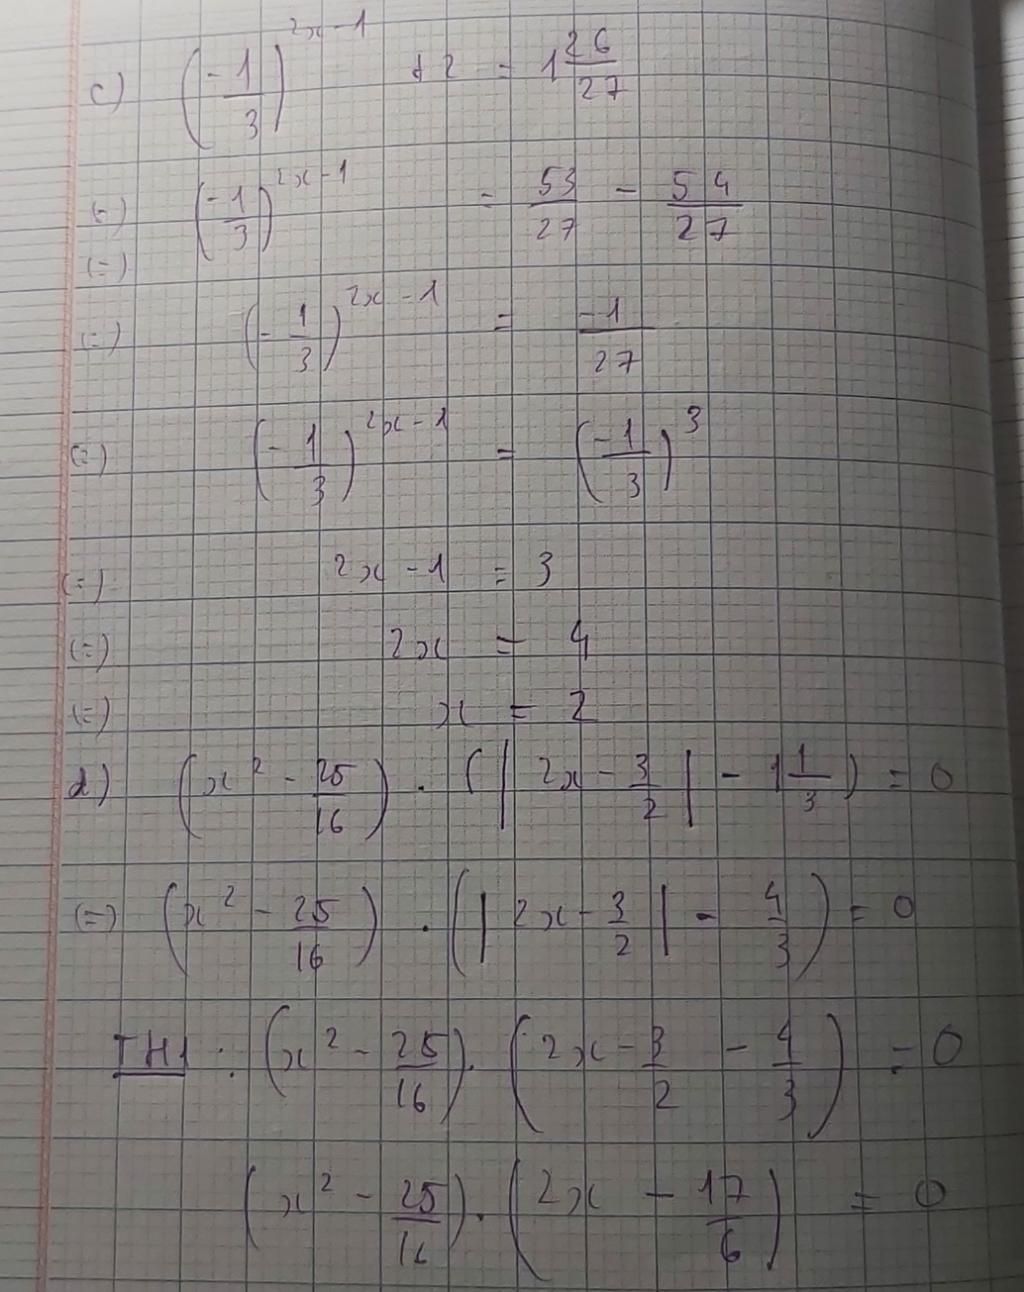 c) (-1/3)^(2x-1) + 2 = 1 26/27
(=) (-1/3)^(2x-1) = 53/27 - 54/27
(=)
(=) (-1/3)^(2x-1) = -1/27
(=) (-1/3)^(2x-1) = (-1/3)^3
(=) 2x - 1 = 3
(=) 2x = 4
(=) x = 2
d) (x^2 - 25/16) . (|2x - 3/2| - 1 1/3) = 0
(=) (x^2 - 25/16) . (|2x - 3/2| - 4/3) = 0
TH1 : (x^2 - 25/16) . (2x - 3/2 - 4/3) = 0
(x^2 - 25/16) . (2x - 17/6) = 0